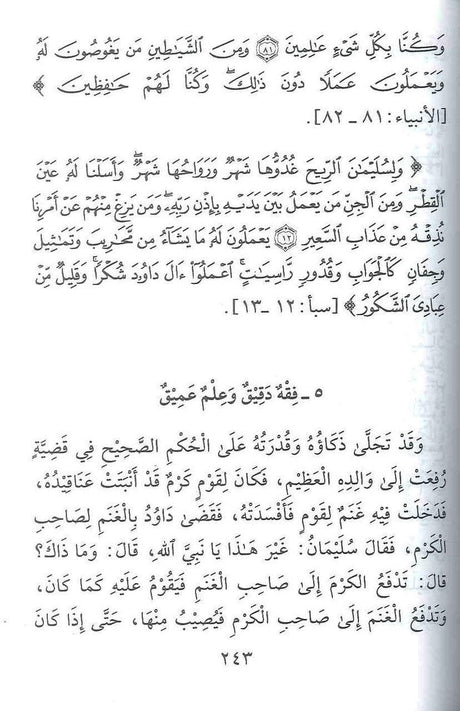 وَكُنَّا بِكُلِّ شَىْءٍ عَـٰلِمِينَ ۝٨١ وَمِنَ الشَّيَـٰطِينِ مَن يَغُوصُونَ لَهُۥ
وَيَعْمَلُونَ عَمَلًا دُونَ ذَٰلِكَۖ وَكُنَّا لَهُمْ حَـٰفِظِينَ ﴾
[الأنبياء: ٨١ ـ ٨٢].
﴿ وَلِسُلَيْمَـٰنَ الرِّيحَ غُدُوُّهَا شَهْرٌ وَرَوَاحُهَا شَهْرٌۖ وَأَسَلْنَا لَهُۥ عَيْنَ
الْقِطْرِۖ وَمِنَ الْجِنِّ مَن يَعْمَلُ بَيْنَ يَدَيْهِ بِإِذْنِ رَبِّهِۦۖ وَمَن يَزِغْ مِنْهُمْ عَنْ أَمْرِنَا
نُذِقْهُ مِنْ عَذَابِ السَّعِيرِ ۝١٢ يَعْمَلُونَ لَهُۥ مَا يَشَآءُ مِن مَّحَـٰرِيبَ وَتَمَـٰثِيلَ
وَجِفَانٍ كَالْجَوَابِ وَقُدُورٍ رَّاسِيَـٰتٍۚ اعْمَلُوٓا۟ ءَالَ دَاوُۥدَ شُكْرًاۚ وَقَلِيلٌ مِّنْ
عِبَادِىَ الشَّكُورُ ﴾ [سبأ: ١٢ ـ ١٣].
٥ ـ فِقْهٌ دَقِيقٌ وَعِلْمٌ عَمِيقٌ
وَقَدْ تَجَلَّىٰ ذَكَاؤُهُ وَقُدْرَتُهُ عَلَىٰ الْحُكْمِ الصَّحِيْحِ فِي قَضِيَّةٍ
رُفِعَتْ إِلَىٰ وَالِدِهِ الْعَظِيْمِ، فَكَانَ لِقَوْمٍ كَرْمٌ قَدْ أَنْبَتَتْ عَنَاقِيْدُهُ،
فَدَخَلَتْ فِيْهِ غَنَمٌ لِقَوْمٍ فَأَفْسَدَتْهُ، فَقَضَىٰ دَاوُدُ بِالْغَنَمِ لِصَاحِبِ
الْكَرْمِ، فَقَالَ سُلَيْمَانُ: غَيْرَ هَـٰذَا يَا نَبِيَّ اللهِ، قَالَ: وَمَا ذَاكَ؟
قَالَ: تَدْفَعُ الْكَرْمَ إِلَىٰ صَاحِبِ الْغَنَمِ فَيَقُوْمُ عَلَيْهِ كَمَا كَانَ،
وَتَدْفَعُ الْغَنَمَ إِلَىٰ صَاحِبِ الْكَرْمِ فَيُصِيْبُ مِنْهَا، حَتَّىٰ إِذَا كَانَ
٢٤٣